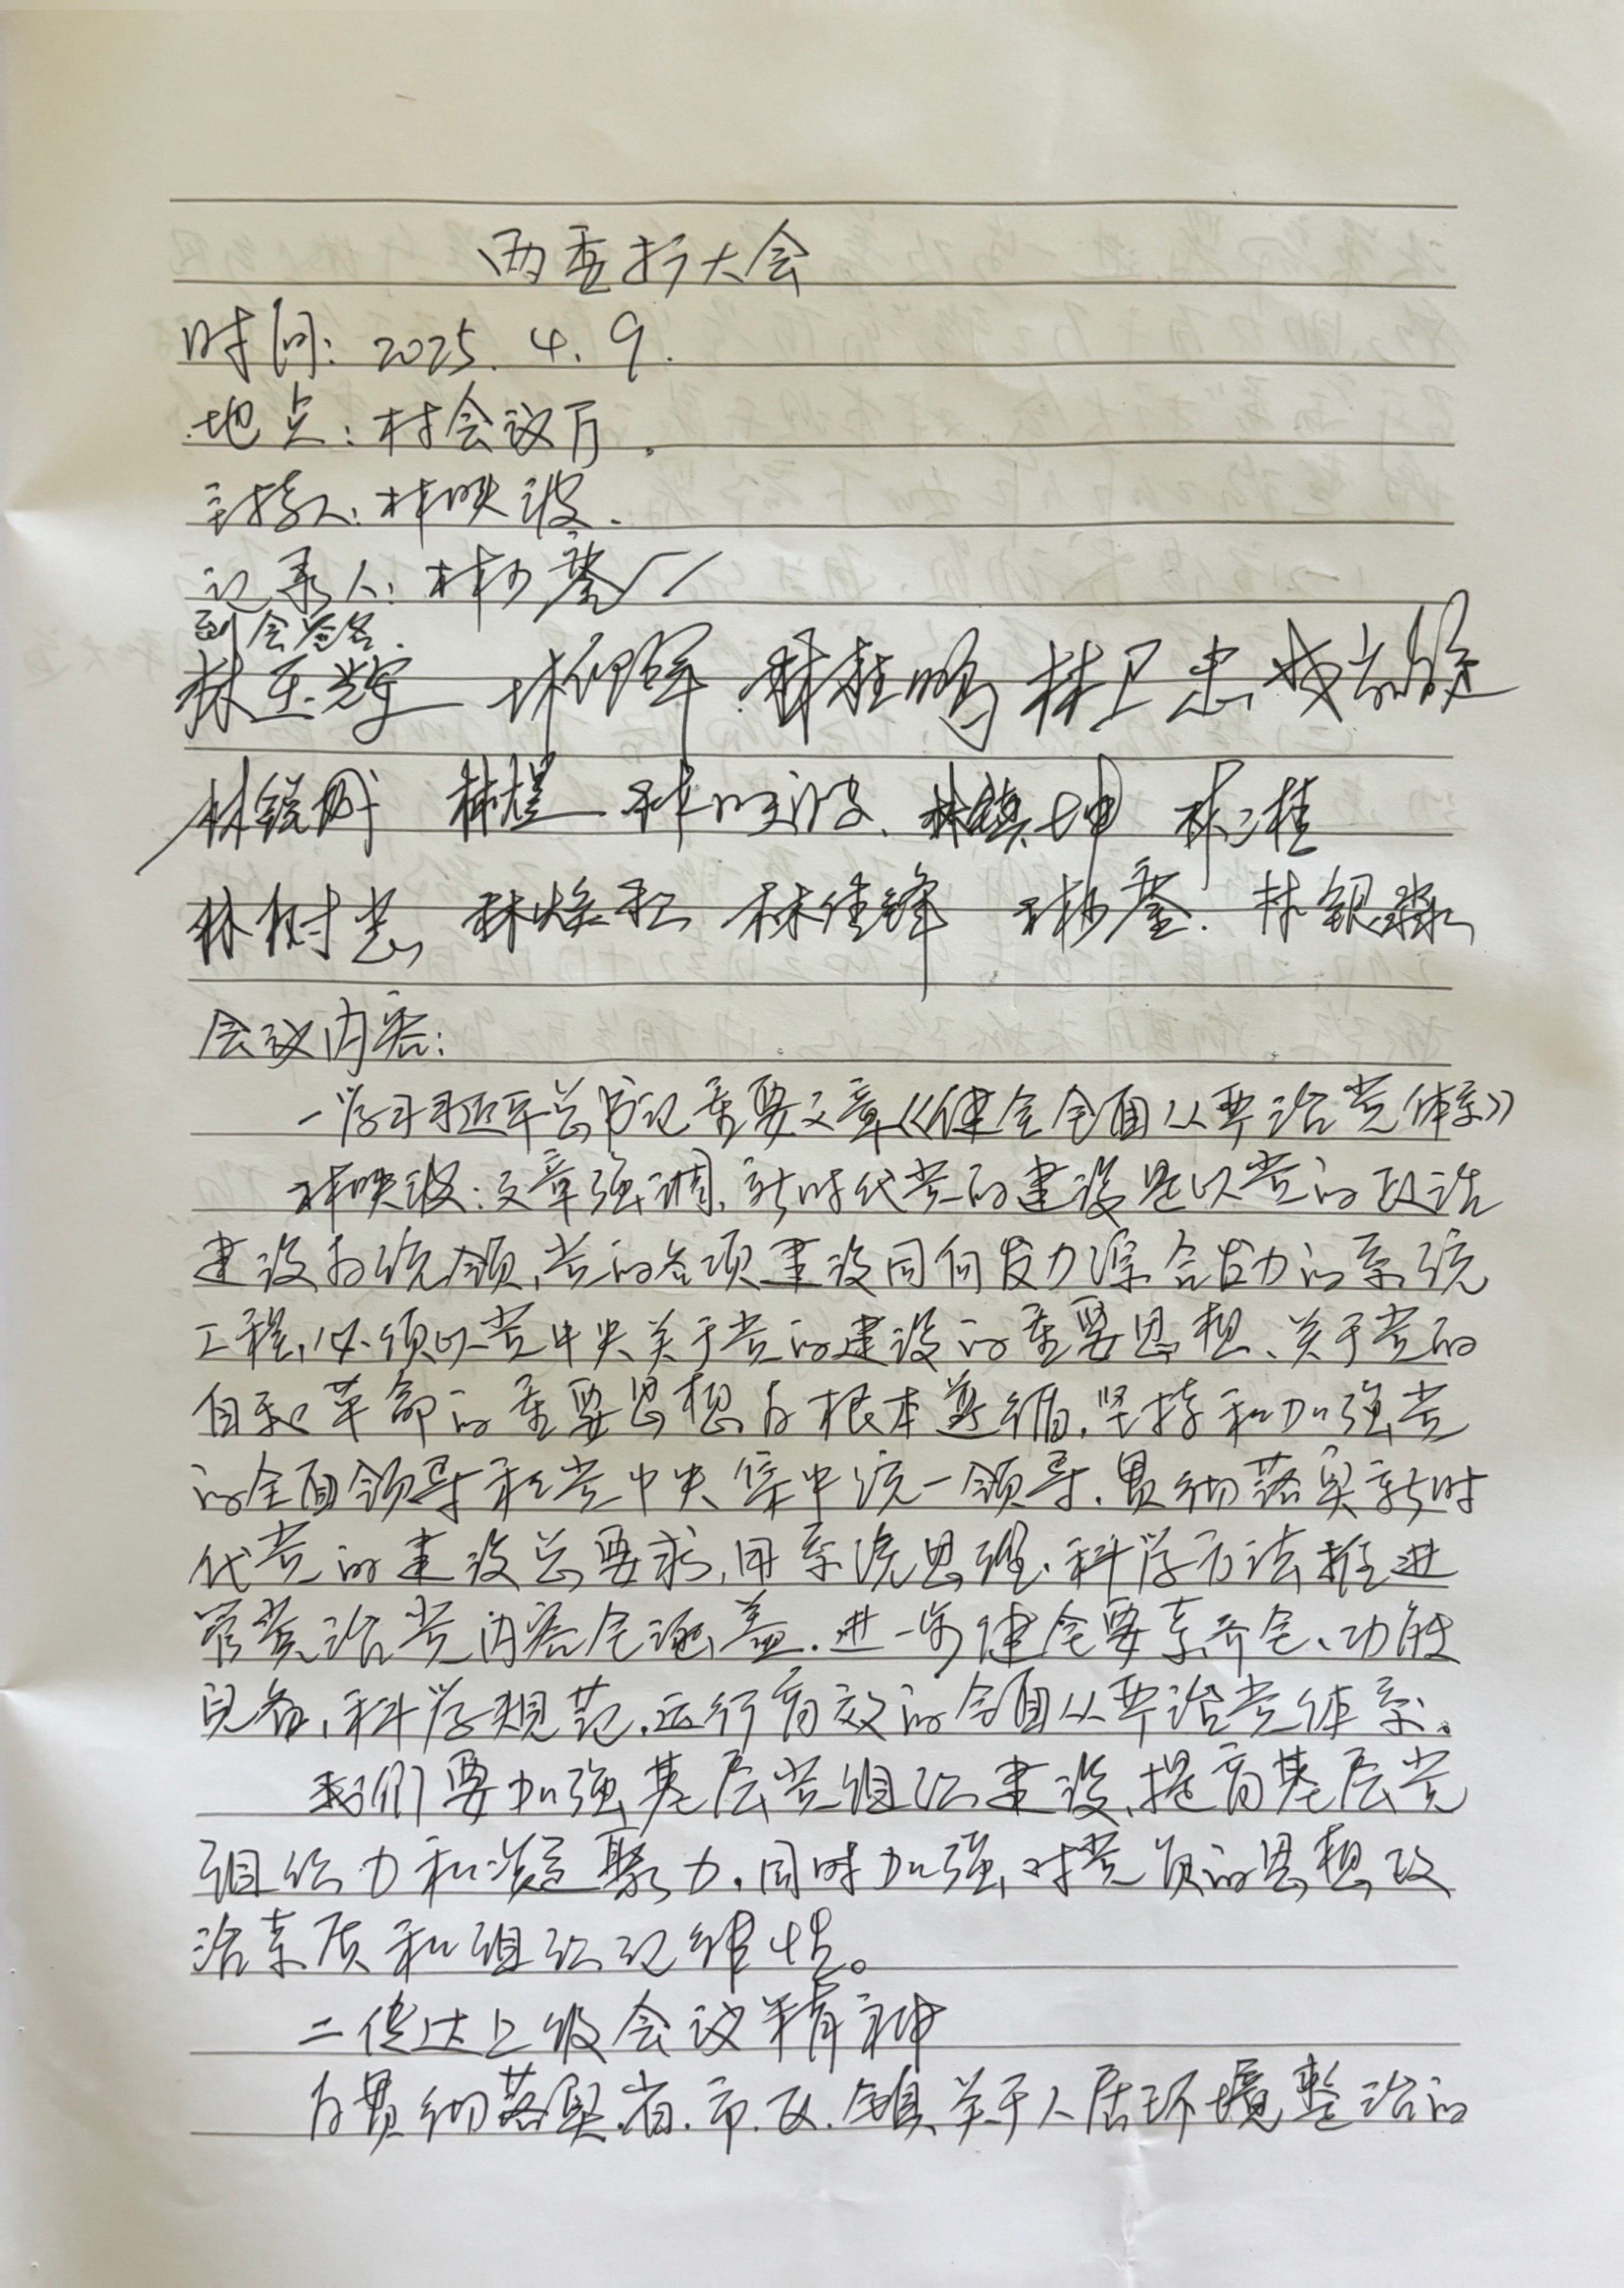 两委扩大会
时间: 2025. 4. 9.
地点: 村会议厅.
主持人: 林映波.
记录人: 林少蓥
到会签名.
林玉辉 林卫忠
林锐树 林煜 林映波. 林镇坤 林三桂
林树光 林焕和 林佳锋 林少蓥. 林银森
会议内容:
一学习习近平总书记重要文章《健全全面从严治党体系》
林映波: 文章强调, 新时代党的建设是以党的政治
建设为统领, 党的各项建设同向发力综合发力的系统
工程, 必须以党中央关于党的建设的重要思想、关于党的
自我革命的重要思想为根本遵循, 坚持和加强党
的全面领导和党中央集中统一领导, 贯彻落实新时
代党的建设总要求, 用系统思维、科学方法推进
管党治党内容全涵盖. 进一步健全要素齐全、功能
完备、科学规范、运行高效的全面从严治党体系。
我们要加强基层党组织建设, 提高基层党
组织力和凝聚力. 同时加强对党员的思想政
治素质和组织纪律性。
二传达上级会议精神
为贯彻落实省. 市. 区. 镇关于人居环境整治的